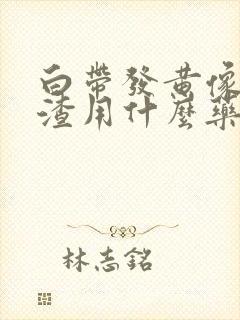 白帶發黃像
渣用什麼藥
林志銘